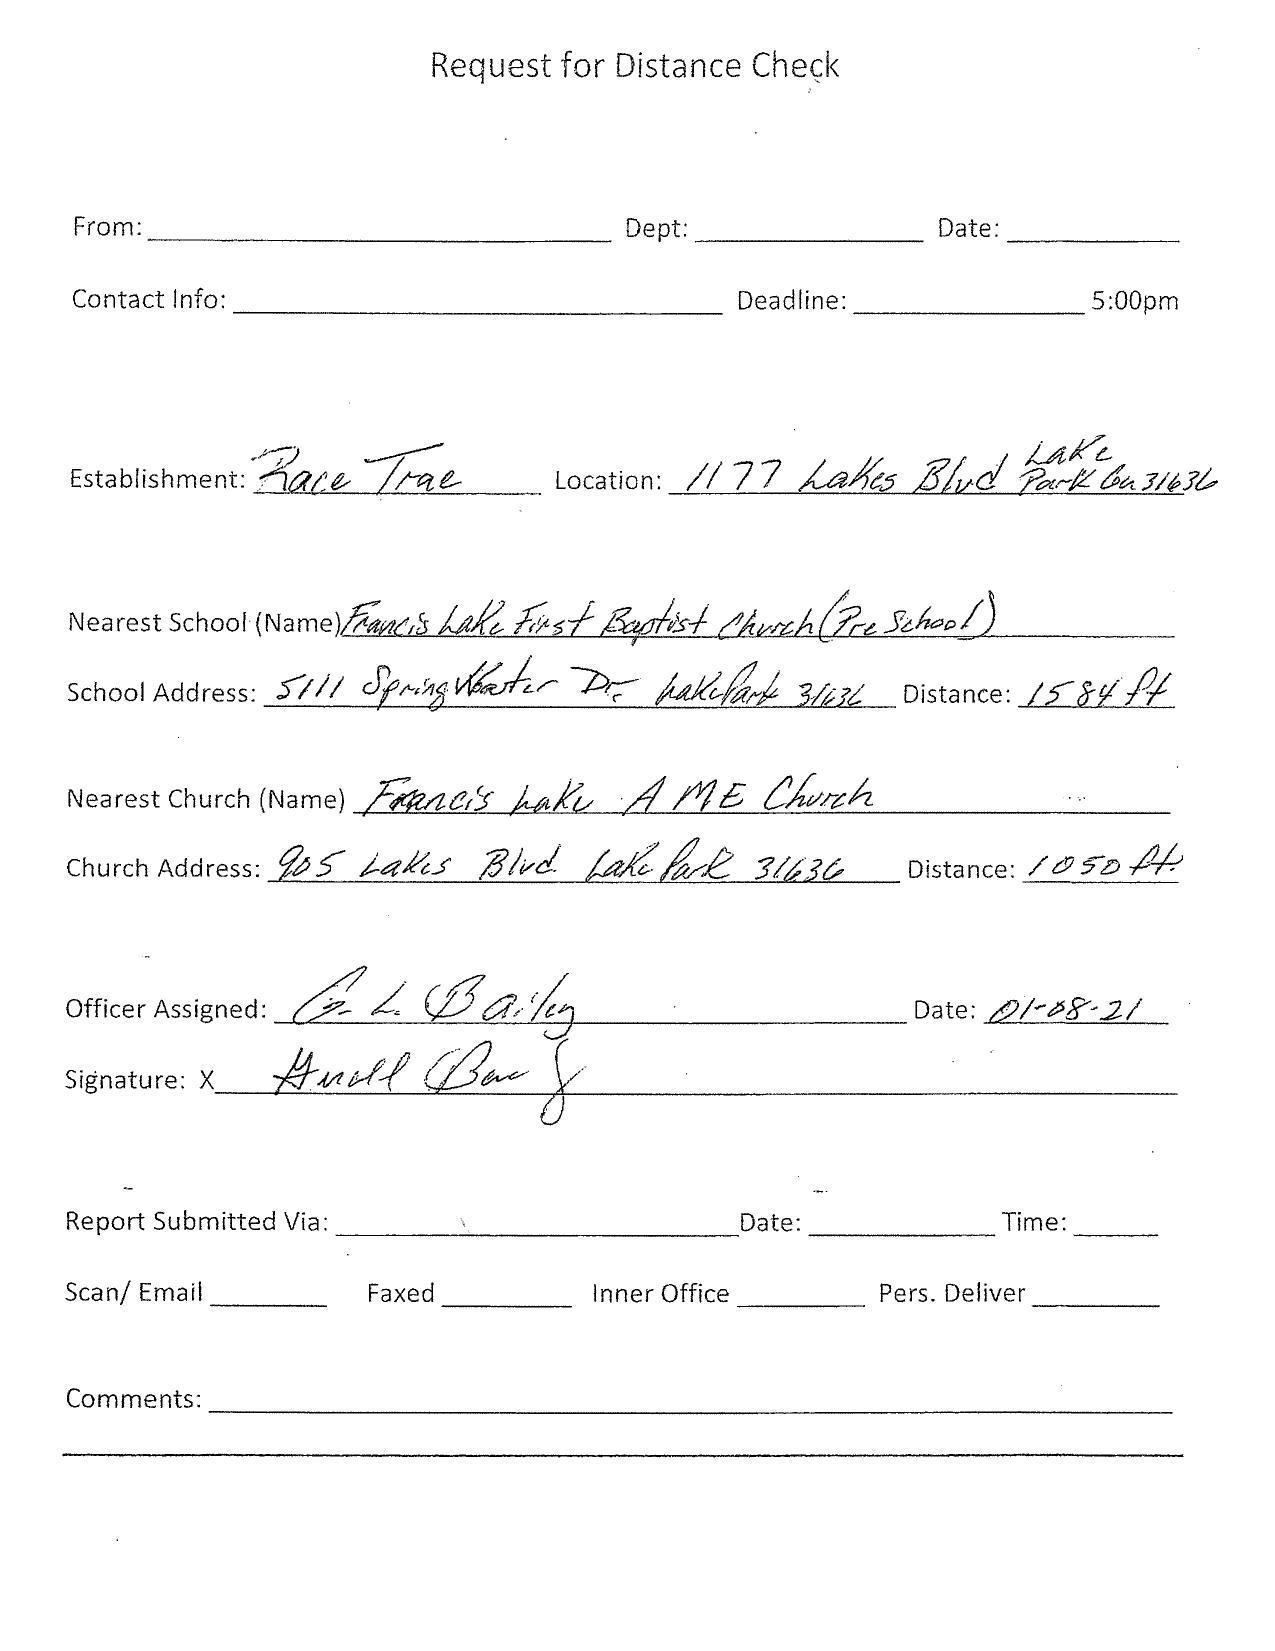 Request for Distance Check
From: Dept: Date:
Contact Info: Deadline: 5:00pm
Establishment: Race Trac Location: 1177 Lakes Blvd Lake Park Ga 31636
Nearest School (Name) Francis Lake First Baptist Church (Pre School)
School Address: 5111 Spring Water Dr. Lake Park 31636 Distance: 1584 ft
Nearest Church (Name) Francis Lake A M E Church
Church Address: 905 Lakes Blvd. Lake Park 31636 Distance: 1050 ft.
Officer Assigned: G. L. Bailey Date: 01-08-21
Signature: X
Report Submitted Via: Date: Time:
Scan/ Email Faxed Inner Office Pers. Deliver
Comments: